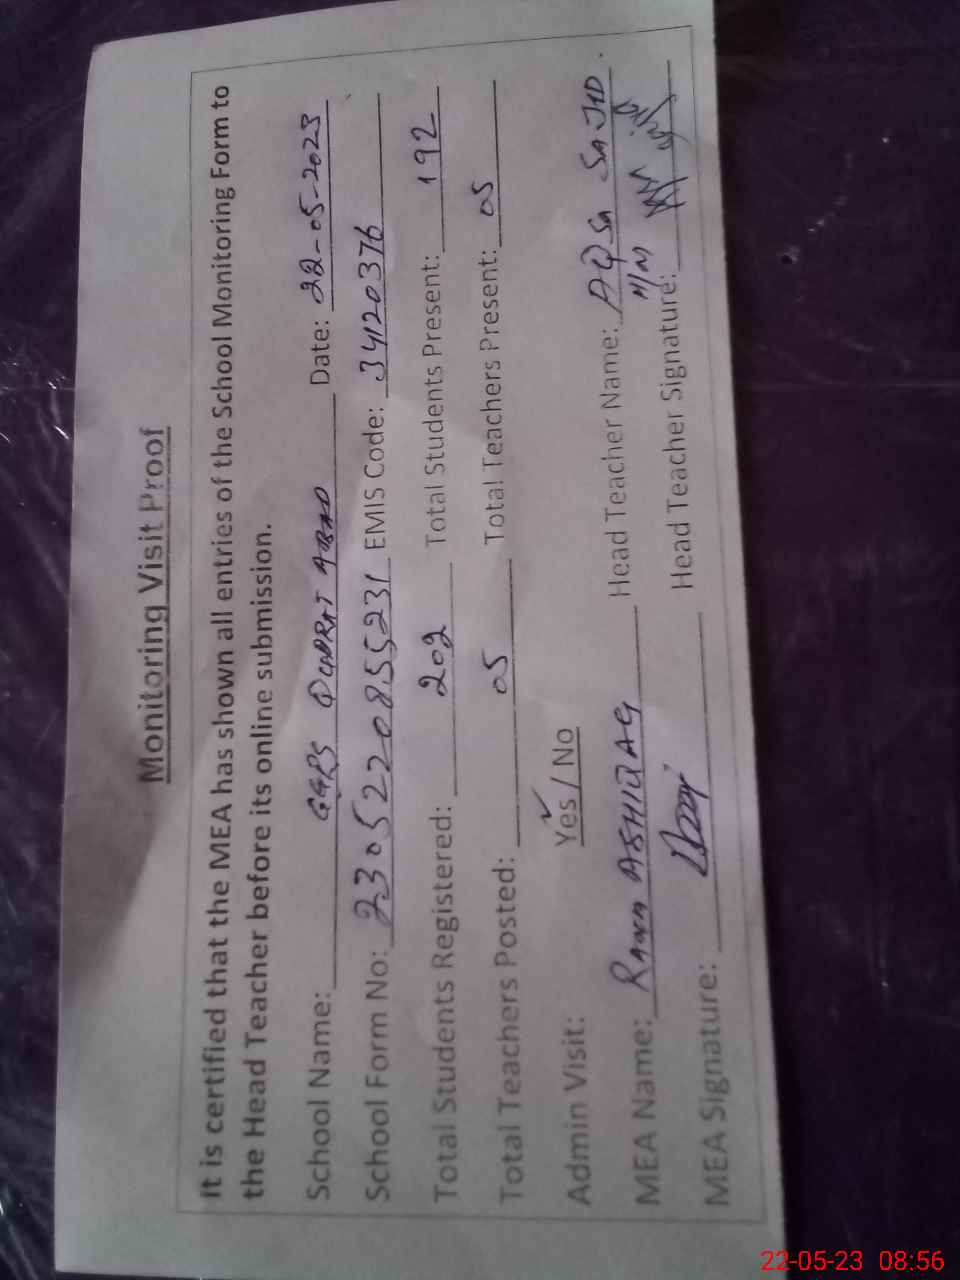 Monitoring Visit Proof
It is certified that the MEA has shown all entries of the School Monitoring Form to
the Head Teacher before its online submission.
School Name: GGPS QUDRAT ABAD Date: 22-05-2023
School Form No: 2305220855231 EMIS Code: 34120376
Total Students Registered: 202 Total Students Present: 192
Total Teachers Posted: 05 Total Teachers Present: 05
Admin Visit: Yes / No
MEA Name: RANA ASHIQ AG Head Teacher Name: AQSA SAJID.
MEA Signature: Head Teacher Signature:
22-05-23 08:56